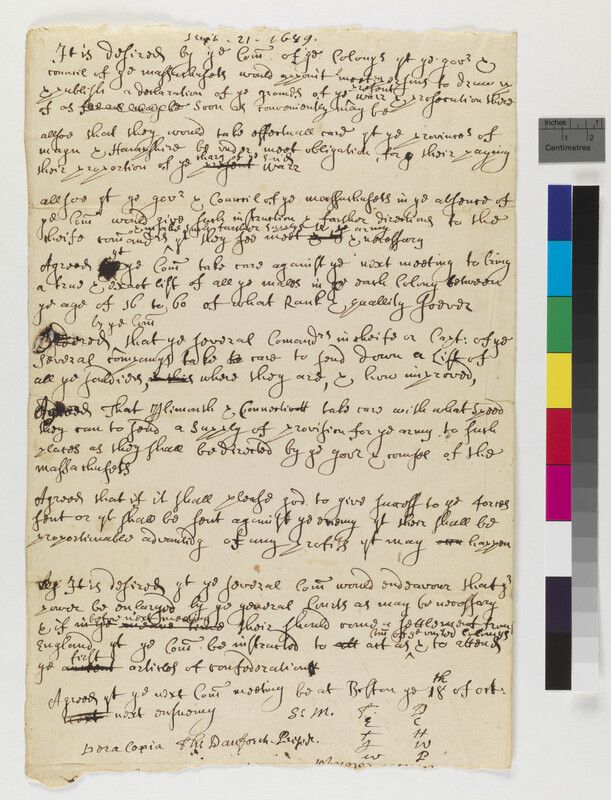 Sept. 21 - 1689.
It is desired by ye Com̄ of ye Colonys yt ye govr &
council of ye massachusets would appoint meet persons to draw up
& publish a declaration of ye grounds of ye present warr & prosecution there
of as soon as conveniently may be
allsoe that they would take effectuall care yt ye provinces of
mayn & Hampshire be under meet obligation for their paying
their proportion of ye charg of ye said warr
allsoe yt ye govr & Council of ye massachusets in ye absence of
ye Com̄ would give such instruction & farther directions to the
cheife comandrs of ye army yt they see meet & necessary
Agreed yt ye Com̄ take care against ye next meeting to bring
a true & exact list of all ye males in each Colony between
ye age of 16 to 60 of what Rank & quallity soever
by ye Com̄
Ordered that ye several Comandrs in cheife or Capt: of ye
several companys take care to send down a list of
all ye souldiers, where they are, & how improved,
Agreed That Plimouth & Connecticott take care with what speed
they can to send a supply of provision for ye army to such
places as they shall be directed by ye govr & counsel of the
massachusets
Agreed that if it shall please god to give success to ye forces
sent or yt shall be sent against ye enemy yt their shall be
proportionable advantag of any profits yt may happen
It is desired yt ye several Com̄ would endeavour that yr
power be enlarged by ye general Courts as may be necessary
& if in before next meeting their should come a settlement from
England, yt ye Com̄ be instructed to act as Com̄ of ye united Colonys & to attend
ye first articles of confederation
Agreed yt ye next Com̄ meeting be at Boston ye 18th of oct:
next ensueing
Vera Copia Tho Danforth. Presidt.
S: M. T: D
E C
T H
J W
W P